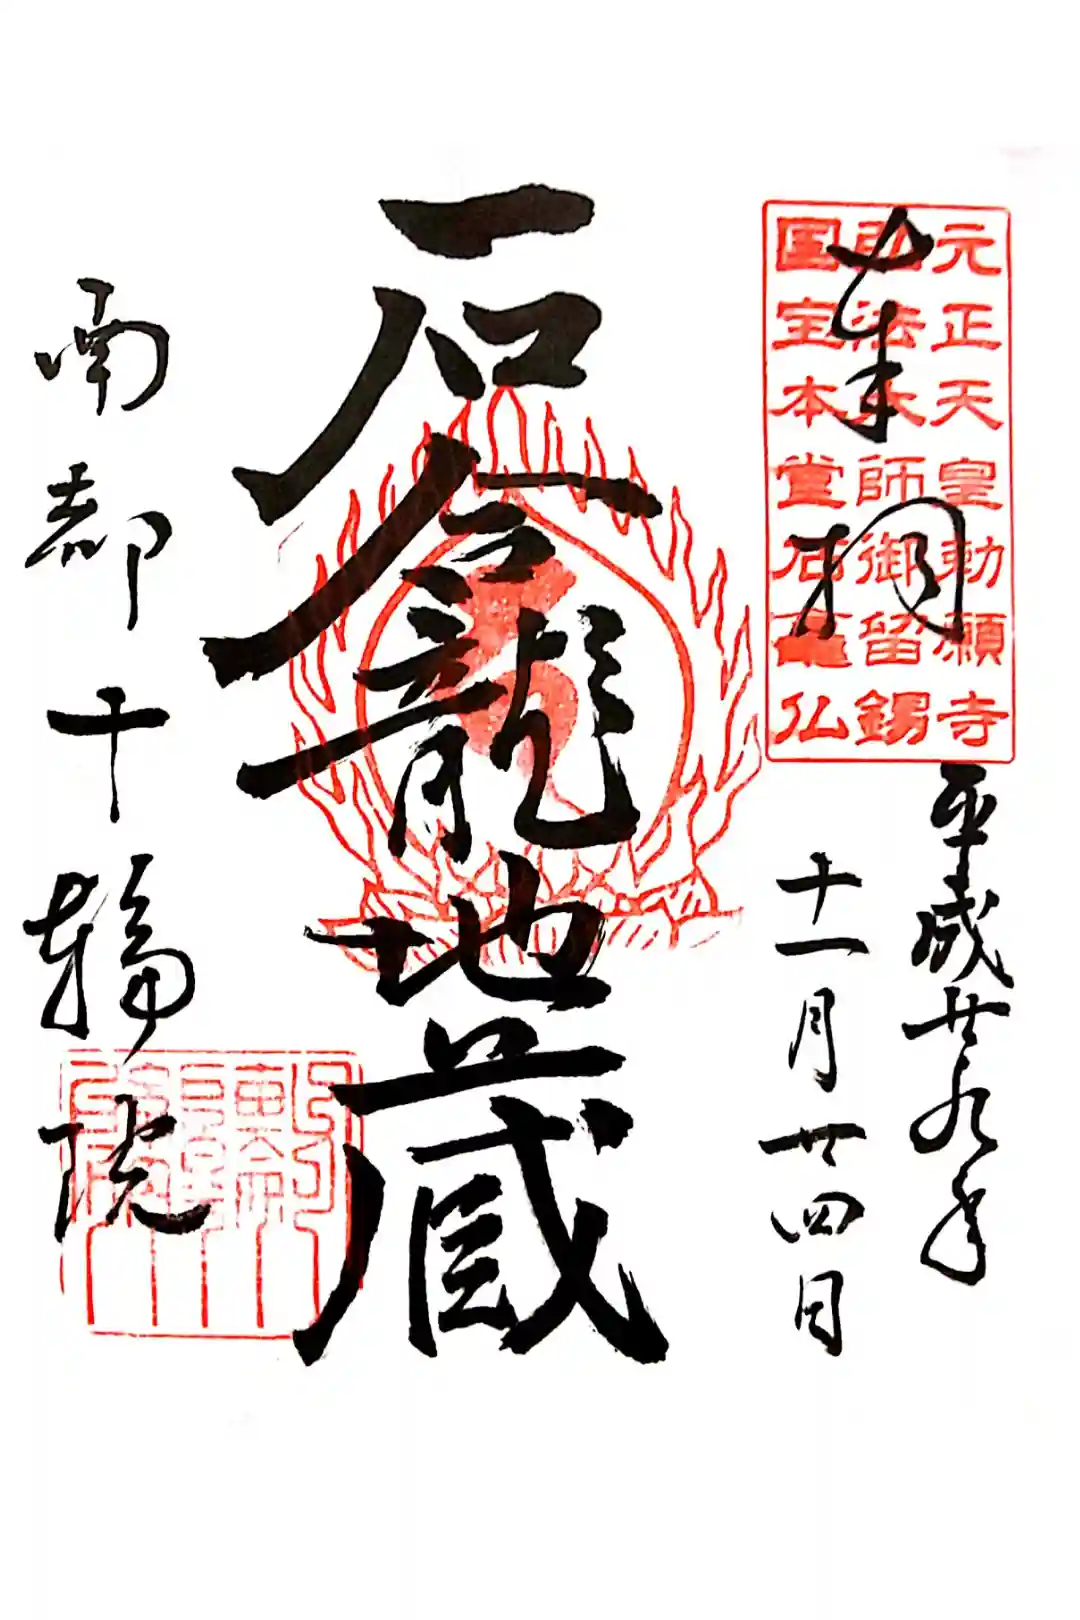 元正天皇勅願寺
弘法大師御留錫
国宝本堂石龕仏
奉拝
平成廿九年
十一月廿四日
石龕地蔵
南都十輪院